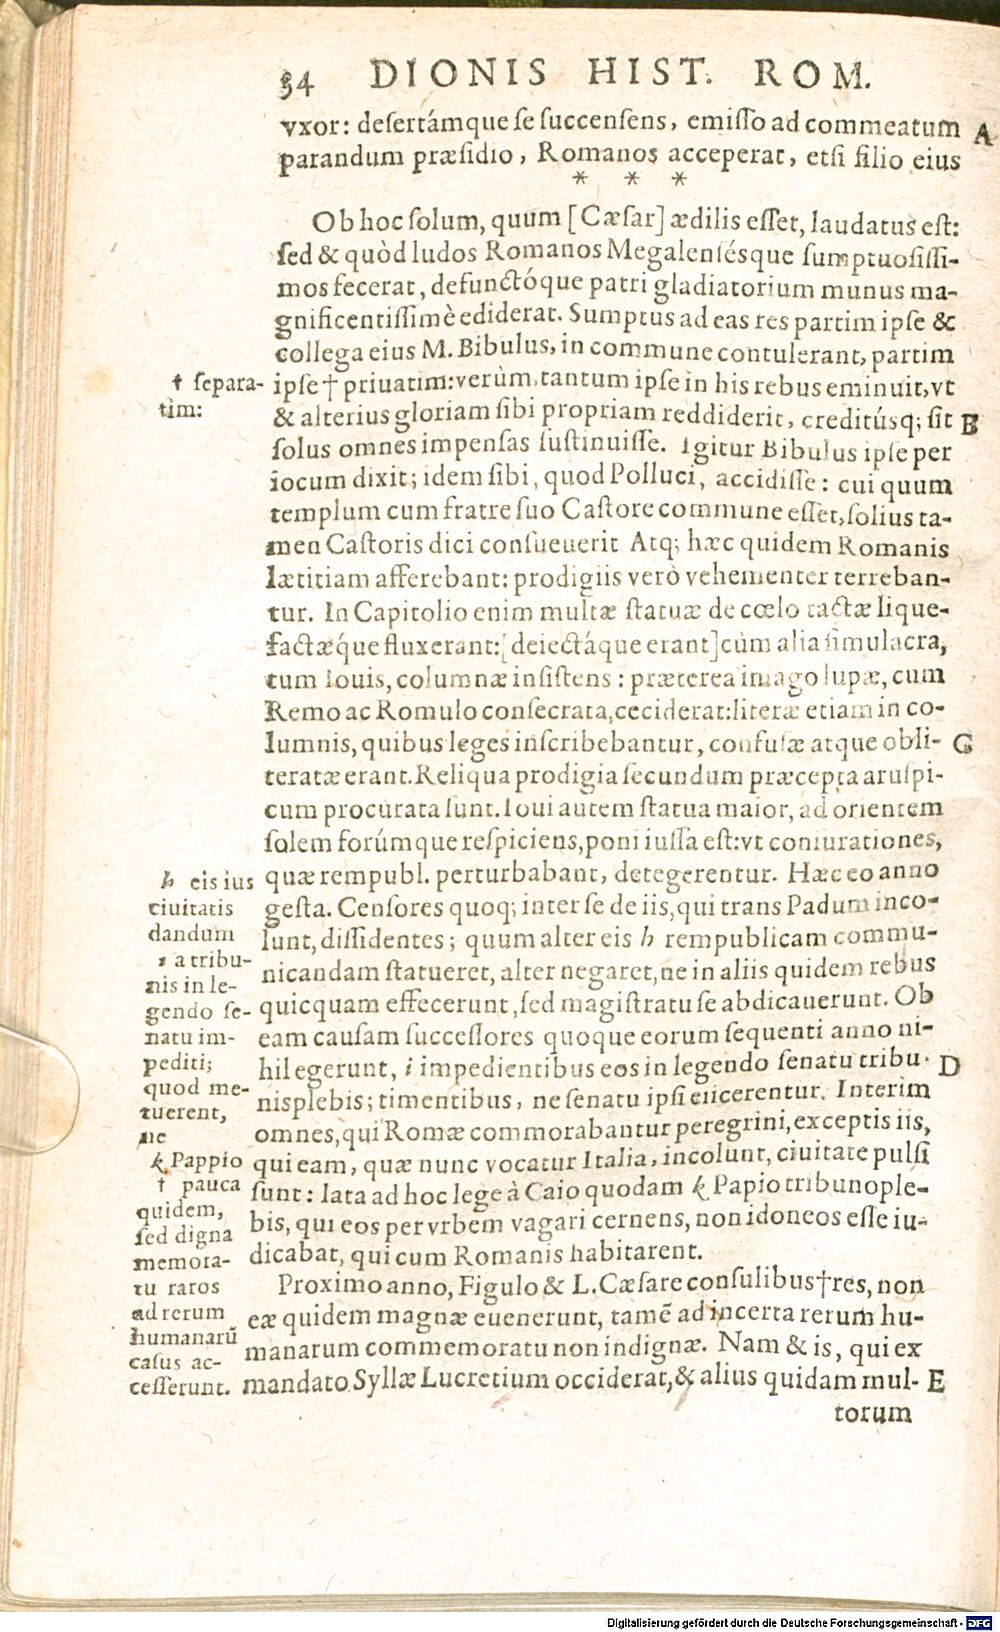 34 DIONIS HIST. ROM.
vxor: desertámque se succensens, emisso ad commeatum A
parandum præsidio, Romanos acceperat, etsi filio eius
* * *
Ob hoc solum, quum [Cæsar] ædilis esset, laudatus est:
sed & quòd ludos Romanos Megalensésque sumptuosissi-
mos fecerat, defunctóque patri gladiatorium munus ma-
gnificentissimè ediderat. Sumptus ad eas res partim ipse &
collega eius M. Bibulus, in commune contulerant, partim
† separa- ipse † priuatim: verùm, tantum ipse in his rebus eminuit, vt
tim: & alterius gloriam sibi propriam reddiderit, creditúsq; sit B
solus omnes impensas sustinuisse. Igitur Bibulus ipse per
iocum dixit; idem sibi, quod Polluci, accidisse: cui quum
templum cum fratre suo Castore commune esset, solius ta-
men Castoris dici consueuerit Atq; hæc quidem Romanis
lætitiam afferebant: prodigiis verò vehementer terreban-
tur. In Capitolio enim multæ statuæ de cœlo tactæ lique-
factæque fluxerant: [deiectáque erant] cùm alia simulacra,
tum Iouis, columnæ insistens: præterea imago lupæ, cum
Remo ac Romulo consecrata, ceciderat: literæ etiam in co-
lumnis, quibus leges inscribebantur, confusæ atque obli- C
teratæ erant. Reliqua prodigia secundum præcepta aruspi-
cum procurata sunt. Ioui autem statua maior, ad orientem
solem forúmque respiciens, poni iussa est: vt coniurationes,
h eis ius quæ rempubl. perturbabant, detegerentur. Hæc eo anno
ciuitatis gesta. Censores quoq; inter se de iis, qui trans Padum inco-
dandum lunt, dissidentes; quum alter eis h rempublicam commu-
i a tribu- nicandam statueret, alter negaret, ne in aliis quidem rebus
nis in le- quicquam effecerunt, sed magistratu se abdicauerunt. Ob
gendo se-
natu im- eam causam successores quoque eorum sequenti anno ni-
pediti; hil egerunt, i impedientibus eos in legendo senatu tribu- D
quod me- nisplebis; timentibus, ne senatu ipsi eiicerentur. Interim
tuerent,
ne omnes, qui Romæ commorabantur peregrini, exceptis iis,
k Pappio qui eam, quæ nunc vocatur Italia, incolunt, ciuitate pulsi
† pauca sunt: lata ad hoc lege à Caio quodam k Papio tribuno ple-
quidem,
sed digna bis, qui eos per vrbem vagari cernens, non idoneos esse iu-
memora- dicabat, qui cum Romanis habitarent.
tu raros Proximo anno, Figulo & L. Cæsare consulibus † res, non
ad rerum eæ quidem magnæ euenerunt, tamē ad incerta rerum hu-
humanarū manarum commemoratu non indignæ. Nam & is, qui ex
casus ac-
cesserunt. mandato Syllæ Lucretium occiderat, & alius quidam mul- E
torum
Digitalisierung gefördert durch die Deutsche Forschungsgemeinschaft - DFG